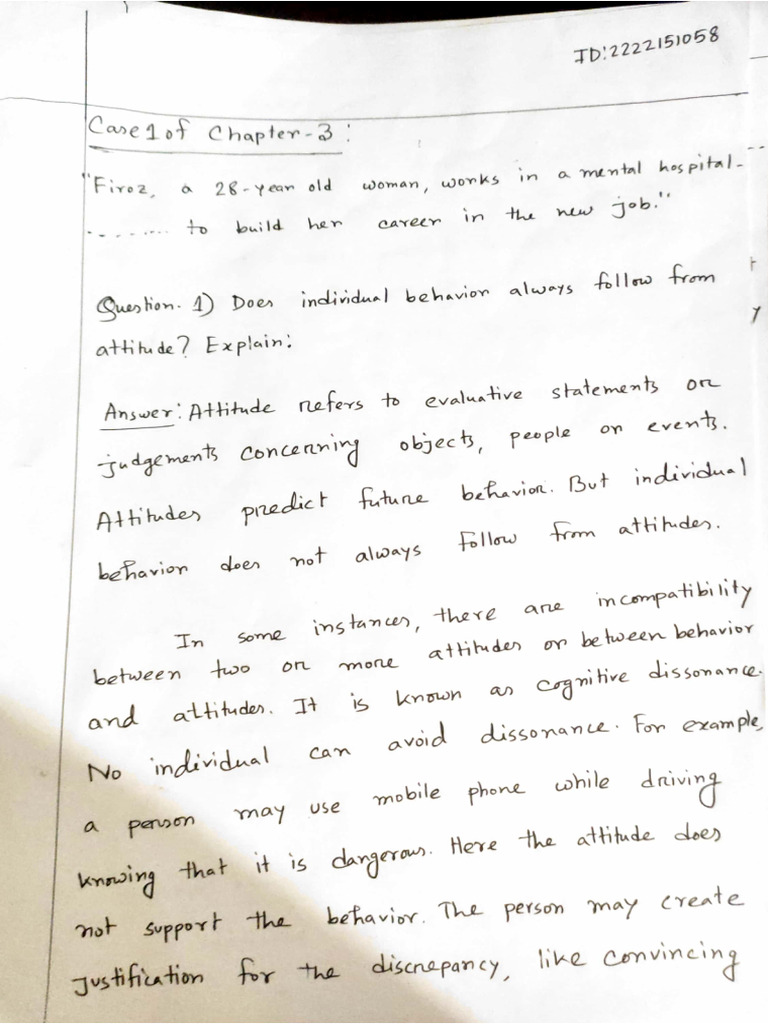 ID:2222151058
Case 1 of Chapter-3:
"Firoz, a 28-year old woman, works in a mental hospital-
......... to build her career in the new job."
Question. 1) Does individual behavior always follow from
attitude? Explain:
Answer: Attitude refers to evaluative statements or
judgements concerning objects, people or events.
Attitudes predict future behavior. But individual
behavior does not always follow from attitudes.
In some instances, there are incompatibility
between two or more attitudes or between behavior
and attitudes. It is known as cognitive dissonance.
No individual can avoid dissonance. For example,
a person may use mobile phone while driving
knowing that it is dangerous. Here the attitude does
not support the behavior. The person may create
justification for the discrepancy, like convincing